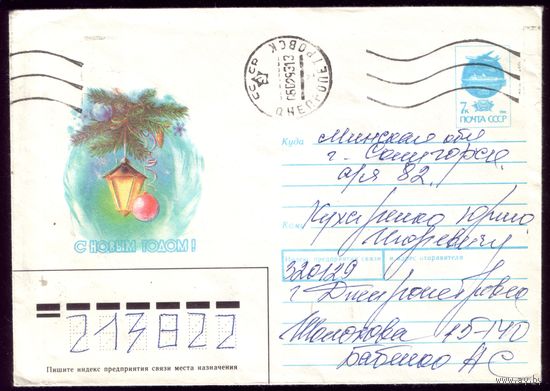 СССР
ДНЕПРОПЕТРОВСК
7к
ПОЧТА СССР
С НОВЫМ ГОДОМ!
Куда Минская обл
г. Солигорск
а/я 82.
Кому Кухаренко Юрию
Игоревичу
Индекс предприятия связи и адрес отправителя
320129
г Днепропетровск
Шолохова 15-140
Бабенко АС
213822
Пишите индекс предприятия связи места назначения